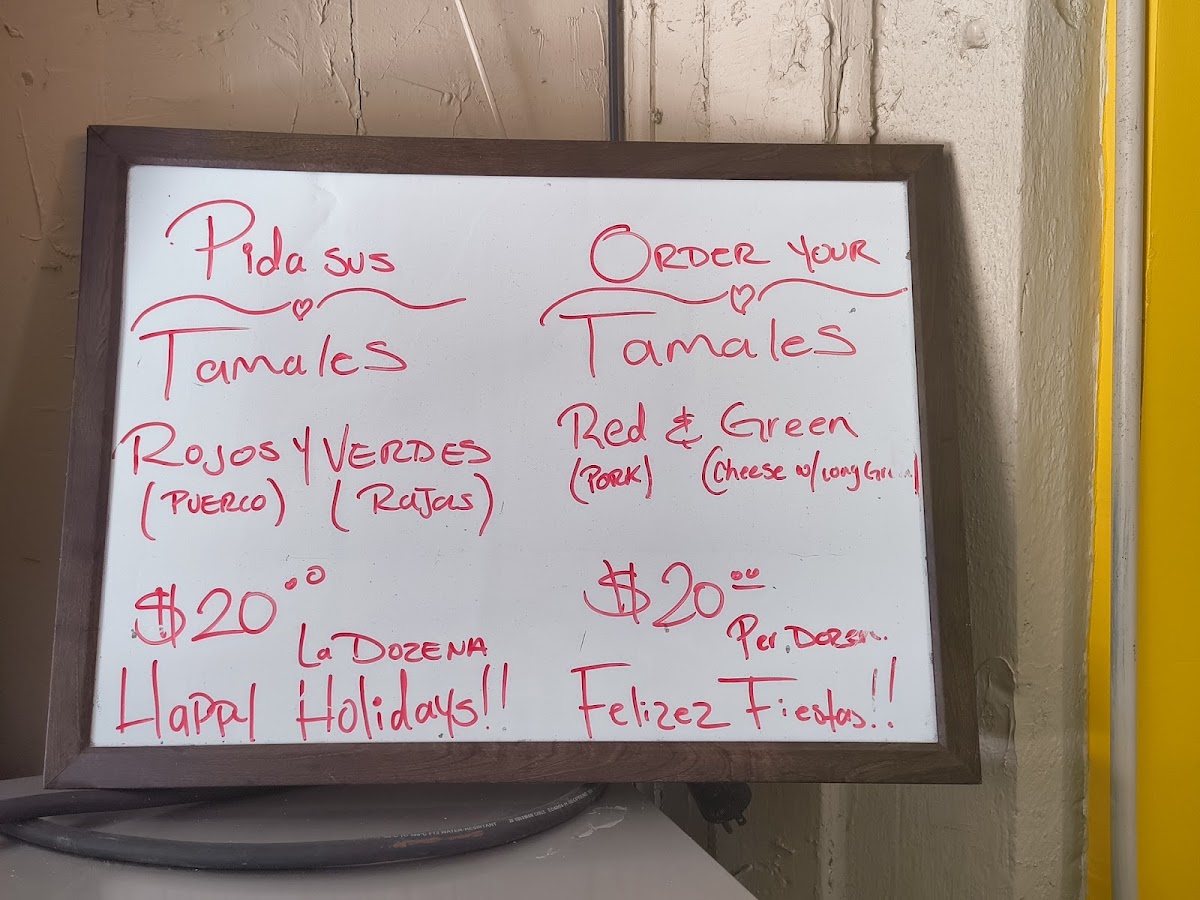 Pida sus
Tamales
Rojos y Verdes
(Puerco) (Rajas)
$20.00
La Dozena
Happy Holidays!!
Order your
Tamales
Red & Green
(Pork) (Cheese w/ Long
$20.00
Per Dozen
Felizez Fiestas!!
WATER RESISTANT